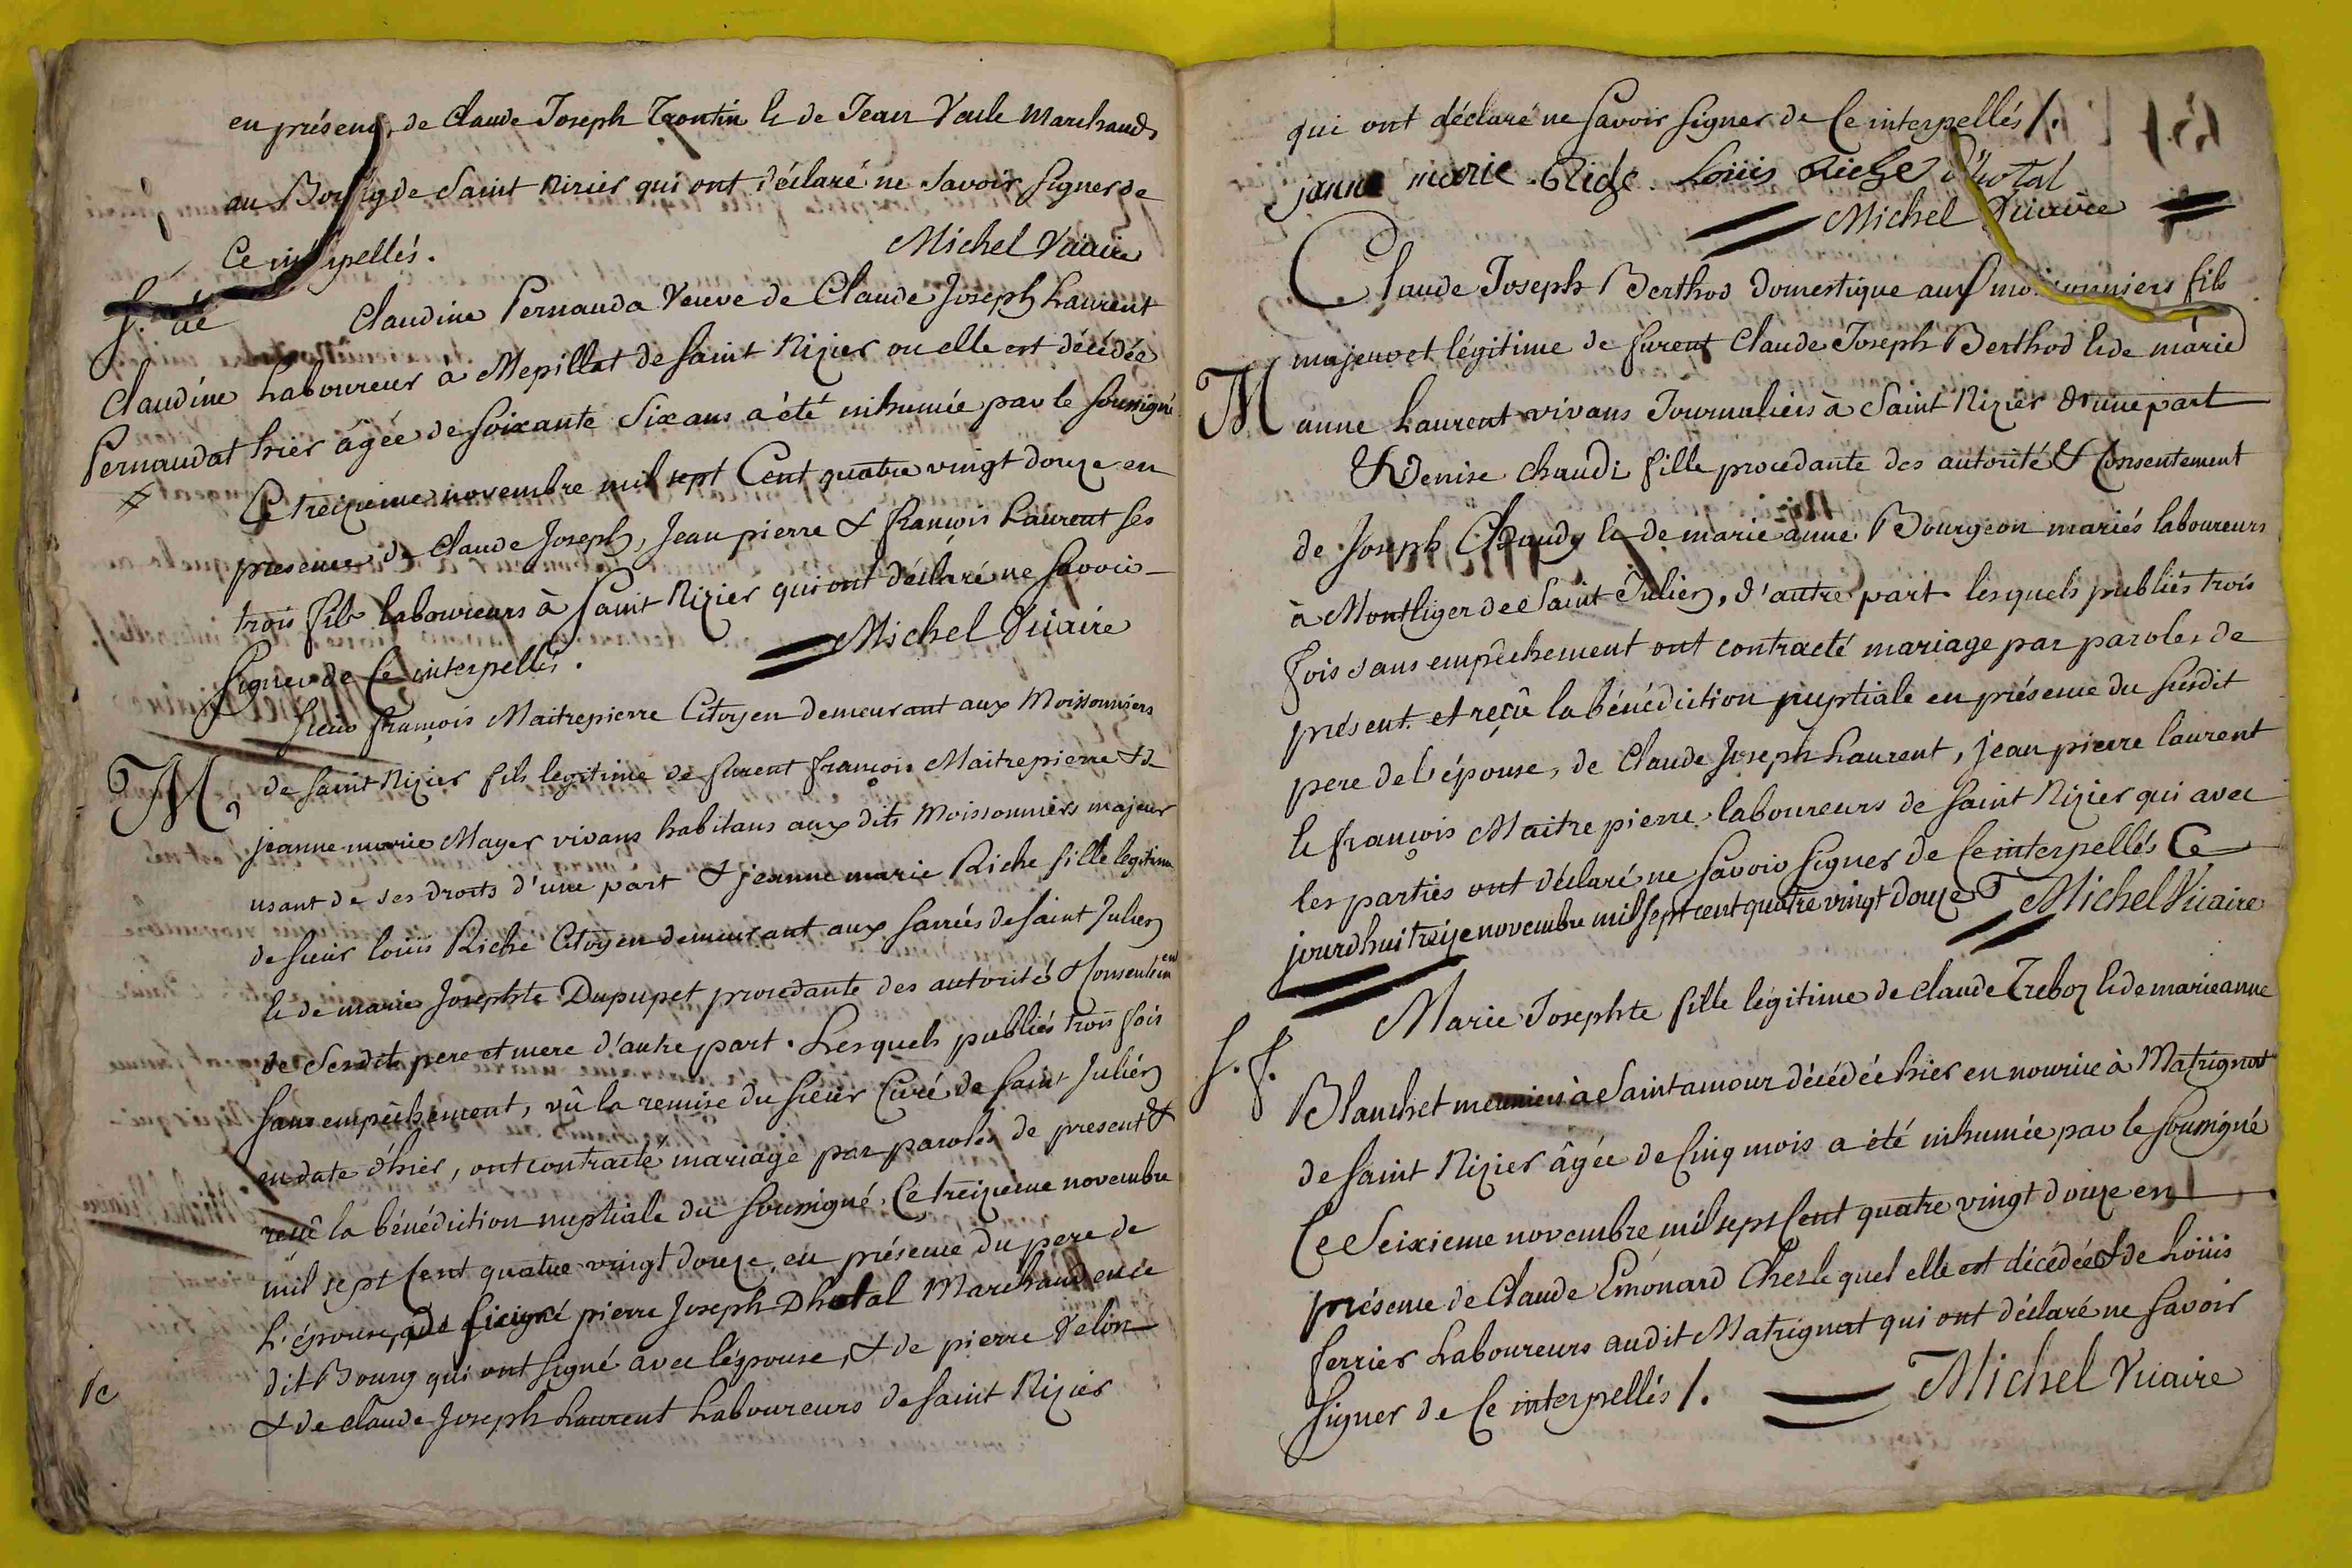 en présence de Claude Joseph Trontin & de Jean Vaule Marchands
au Bourg de Saint Nizier qui ont déclaré ne Savoir Signer de
Ce interpellés. Michel Vicaire
S.
Claudine Pernauda Veuve de Claude Joseph Laurent
Claudine
Laboureur a Mepillat de Saint Nizier ou elle est décédée
Pernaudat
hier âgée de soixante Six ans a été inhumée par le Soussigné
Ce treizieme novembre mil sept Cent quatre vingt douze en
présence de Claude Joseph, Jean pierre & françois Laurent ses
trois fils laboureurs à Saint Nizier qui ont déclaré ne Savoir
Signer de Ce interpellés. Michel Vicaire
Sieur françois Maitrepierre Citoyen demeurant aux Moissonniers
M
de Saint Nizier fils legitime de furent françois Maitrepierre & de
jeanne marie Mayer vivans habitans aux dits Moissonniers majeur
usant de ses droits d'une part & jeanne marie Riche fille legitime
de Sieur loüis Riche Citoyen demeurant aux Sarrées de Saint Julien
& de marie Josephte Dupupet procedante des autorité & Consentement
de Sesdits pere et mere d'autre part. Lesquels publiés trois fois
Sans empêchement, vû la remise du Sieur Curé de Saint Julien
en date d'hier, ont contracté mariage par paroles de present &
reçû la bénédiction nuptiale du Soussigné. Ce treizieme novembre
mil sept Cent quatre vingt douze, en présence du pere de
L'épouse, pierre Joseph Dhotal Marchand en ce
dit Bourg qui ont signé avec l'épouse, & de pierre Velon
& de claude Joseph Laurent Laboureurs de Saint Nizier
qui ont déclaré ne Savoir Signer de Ce interpellés /.
janne marie Riche Loüis Riche d'hotal
Michel Vicaire
Claude Joseph Berthod Domestique aux moissonniers fils
majeur et légitime de furent Claude Joseph Berthod & de marie
M
anne Laurent vivans Journaliers à Saint Nizier d'une part
& Denise Chaudi fille procedante des autorité & Consentement
de Joseph Chaudy & de marie anne Bourgeon mariés laboureurs
à Montliger de Saint Julien, d'autre part. lesquels publiés trois
fois sans empêchement ont contracté mariage par paroles de
présent et reçû la bénédiction nuptiale en présence du Susdit
pere de l'épouse, de Claude Joseph Laurent, jean pierre laurent
& françois Maitre pierre laboureurs de Saint Nizier qui avec
les parties ont déclaré ne Savoir Signer de Ce interpellés Ce
jourdhui treize novembre mil sept cent quatre vingt douze Michel Vicaire
Marie Josephte fille légitime de Claude Treboz & de marie anne
S. f.
Blanchet meuniers à Saint amour décédée hier en nourice à Matrignat
de Saint Nizier âgée de Cinq mois a été inhumée par le Soussigné
Ce Seixieme novembre mil sept Cent quatre vingt douze en
présence de Claude Emonard Chez lequel elle est décédée & de Loüis
ferrier Laboureurs audit Matrignat qui ont déclaré ne Savoir
Signer de Ce interpellés /. Michel Vicaire